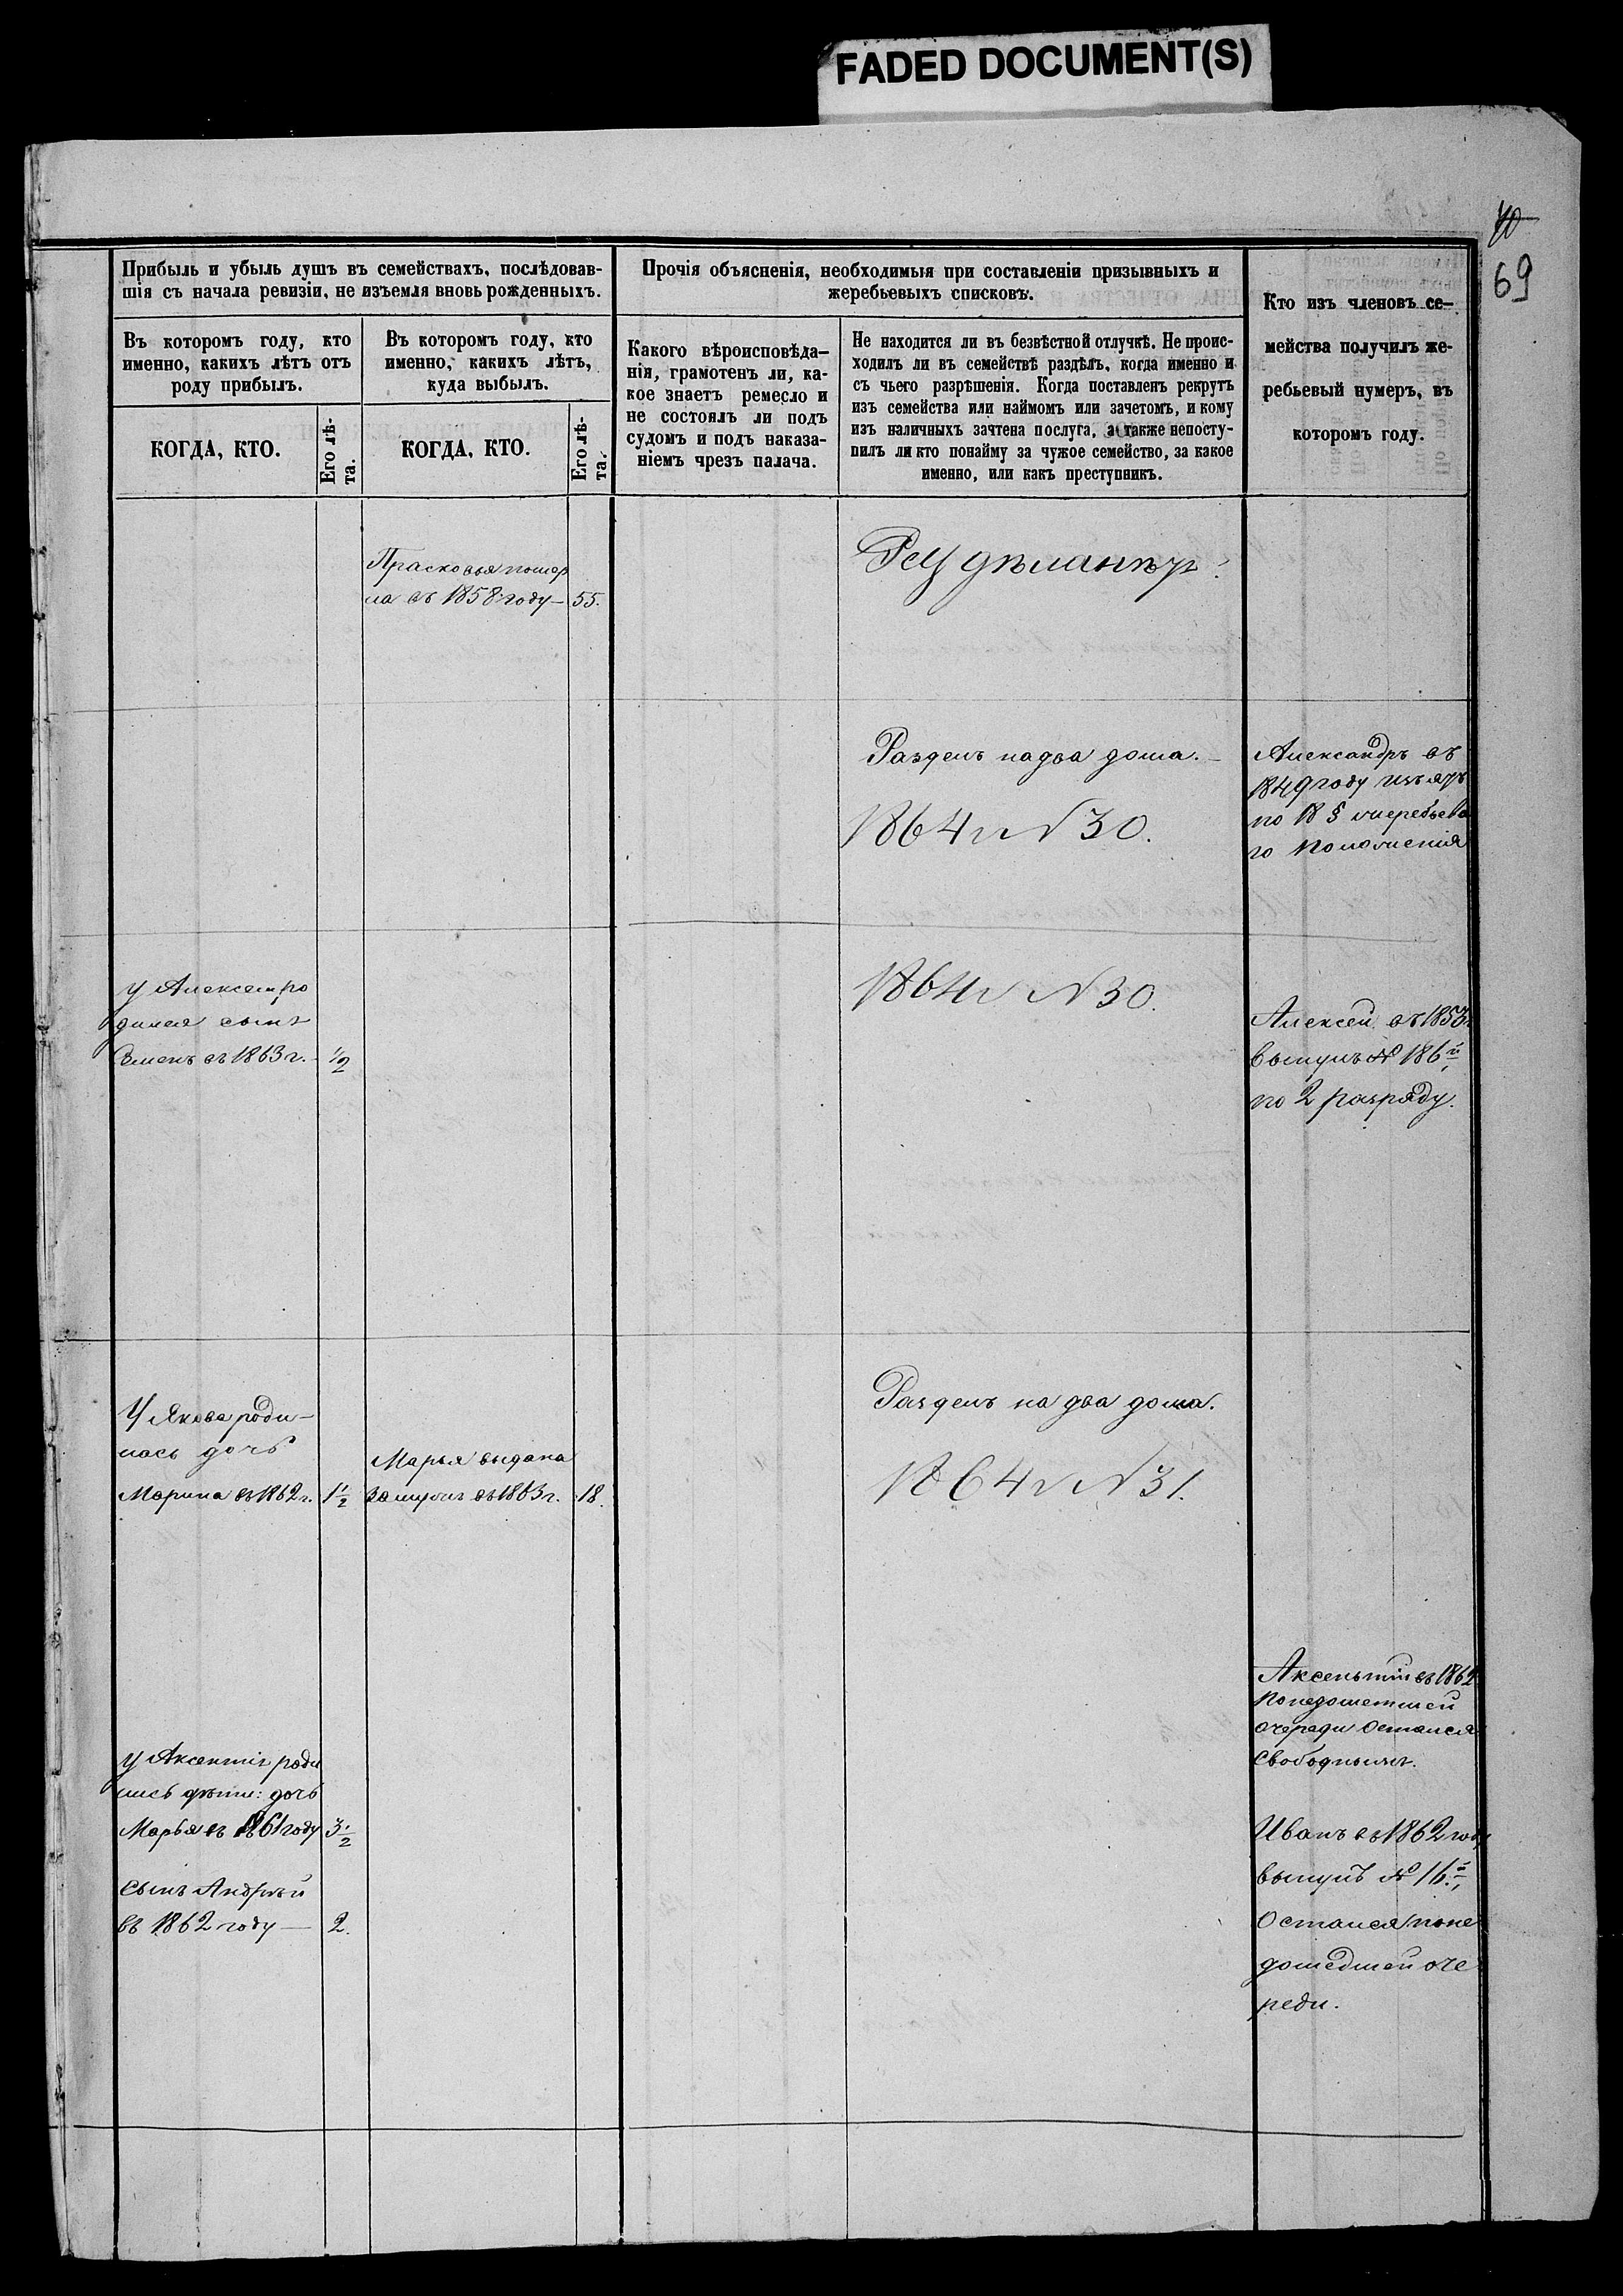 FADED DOCUMENT(S)
70
69
Прибыль и убыль душъ въ семействахъ, послѣдовав-
шія съ начала ревизіи, не изъемля вновь рожденныхъ.
Прочія объясненія, необходимыя при составленіи призывныхъ и
жеребьевыхъ списковъ.
Кто изъ членовъ се-
мейства получилъ же-
ребьевый нумеръ, въ
которомъ году.
Въ которомъ году, кто
именно, какихъ лѣтъ отъ
роду прибылъ.
Въ которомъ году, кто
именно, какихъ лѣтъ,
куда выбылъ.
Какого вѣроисповѣда-
нія, грамотенъ ли, ка-
кое знаетъ ремесло и
не состоялъ ли подъ
судомъ и подъ наказа-
ніемъ чрезъ палача.
Не находится ли въ безвѣстной отлучкѣ. Не проис-
ходилъ ли въ семействѣ раздѣлъ, когда именно и
съ чьего разрѣшенія. Когда поставленъ рекрутъ
изъ семейства или наймомъ или зачетомъ, и кому
изъ наличныхъ зачтена послуга, а также непосту-
пилъ ли кто понайму за чужое семейство, за какое
именно, или какъ преступникъ.
КОГДА, КТО.
Его лѣ-
та.
КОГДА, КТО.
Его лѣ-
та.
Прасковья помер
ла въ 1858 году — 55.
Раздѣлъ на два дома.
1864 г N 30.
Александръ въ
1849 году изъятъ
по 18 § жеребьева
го положенія
У Алексея ро
дился сынъ
Семенъ въ 1863 г. 1/2
1864 г N 30.
Алексей въ 1853 г
вынулъ № 186й
по 2 разряду.
У Якова роди-
лась дочь
Марина въ 1862 г. 1 1/2
Марья выдана
замужъ въ 1863 г. 18.
Разделъ на два дома.
1864 г N 31.
Аксентий въ 1862
по недошедшей
очереди остался
свободнымъ.
У Аксентія роди
лись дѣти: дочь
Марья въ 1861 году 3 1/2
сынъ Андрей
въ 1862 году — 2.
Иванъ въ 1862 году
вынулъ № 16й,
остался по не
дошедшей оче
реди.